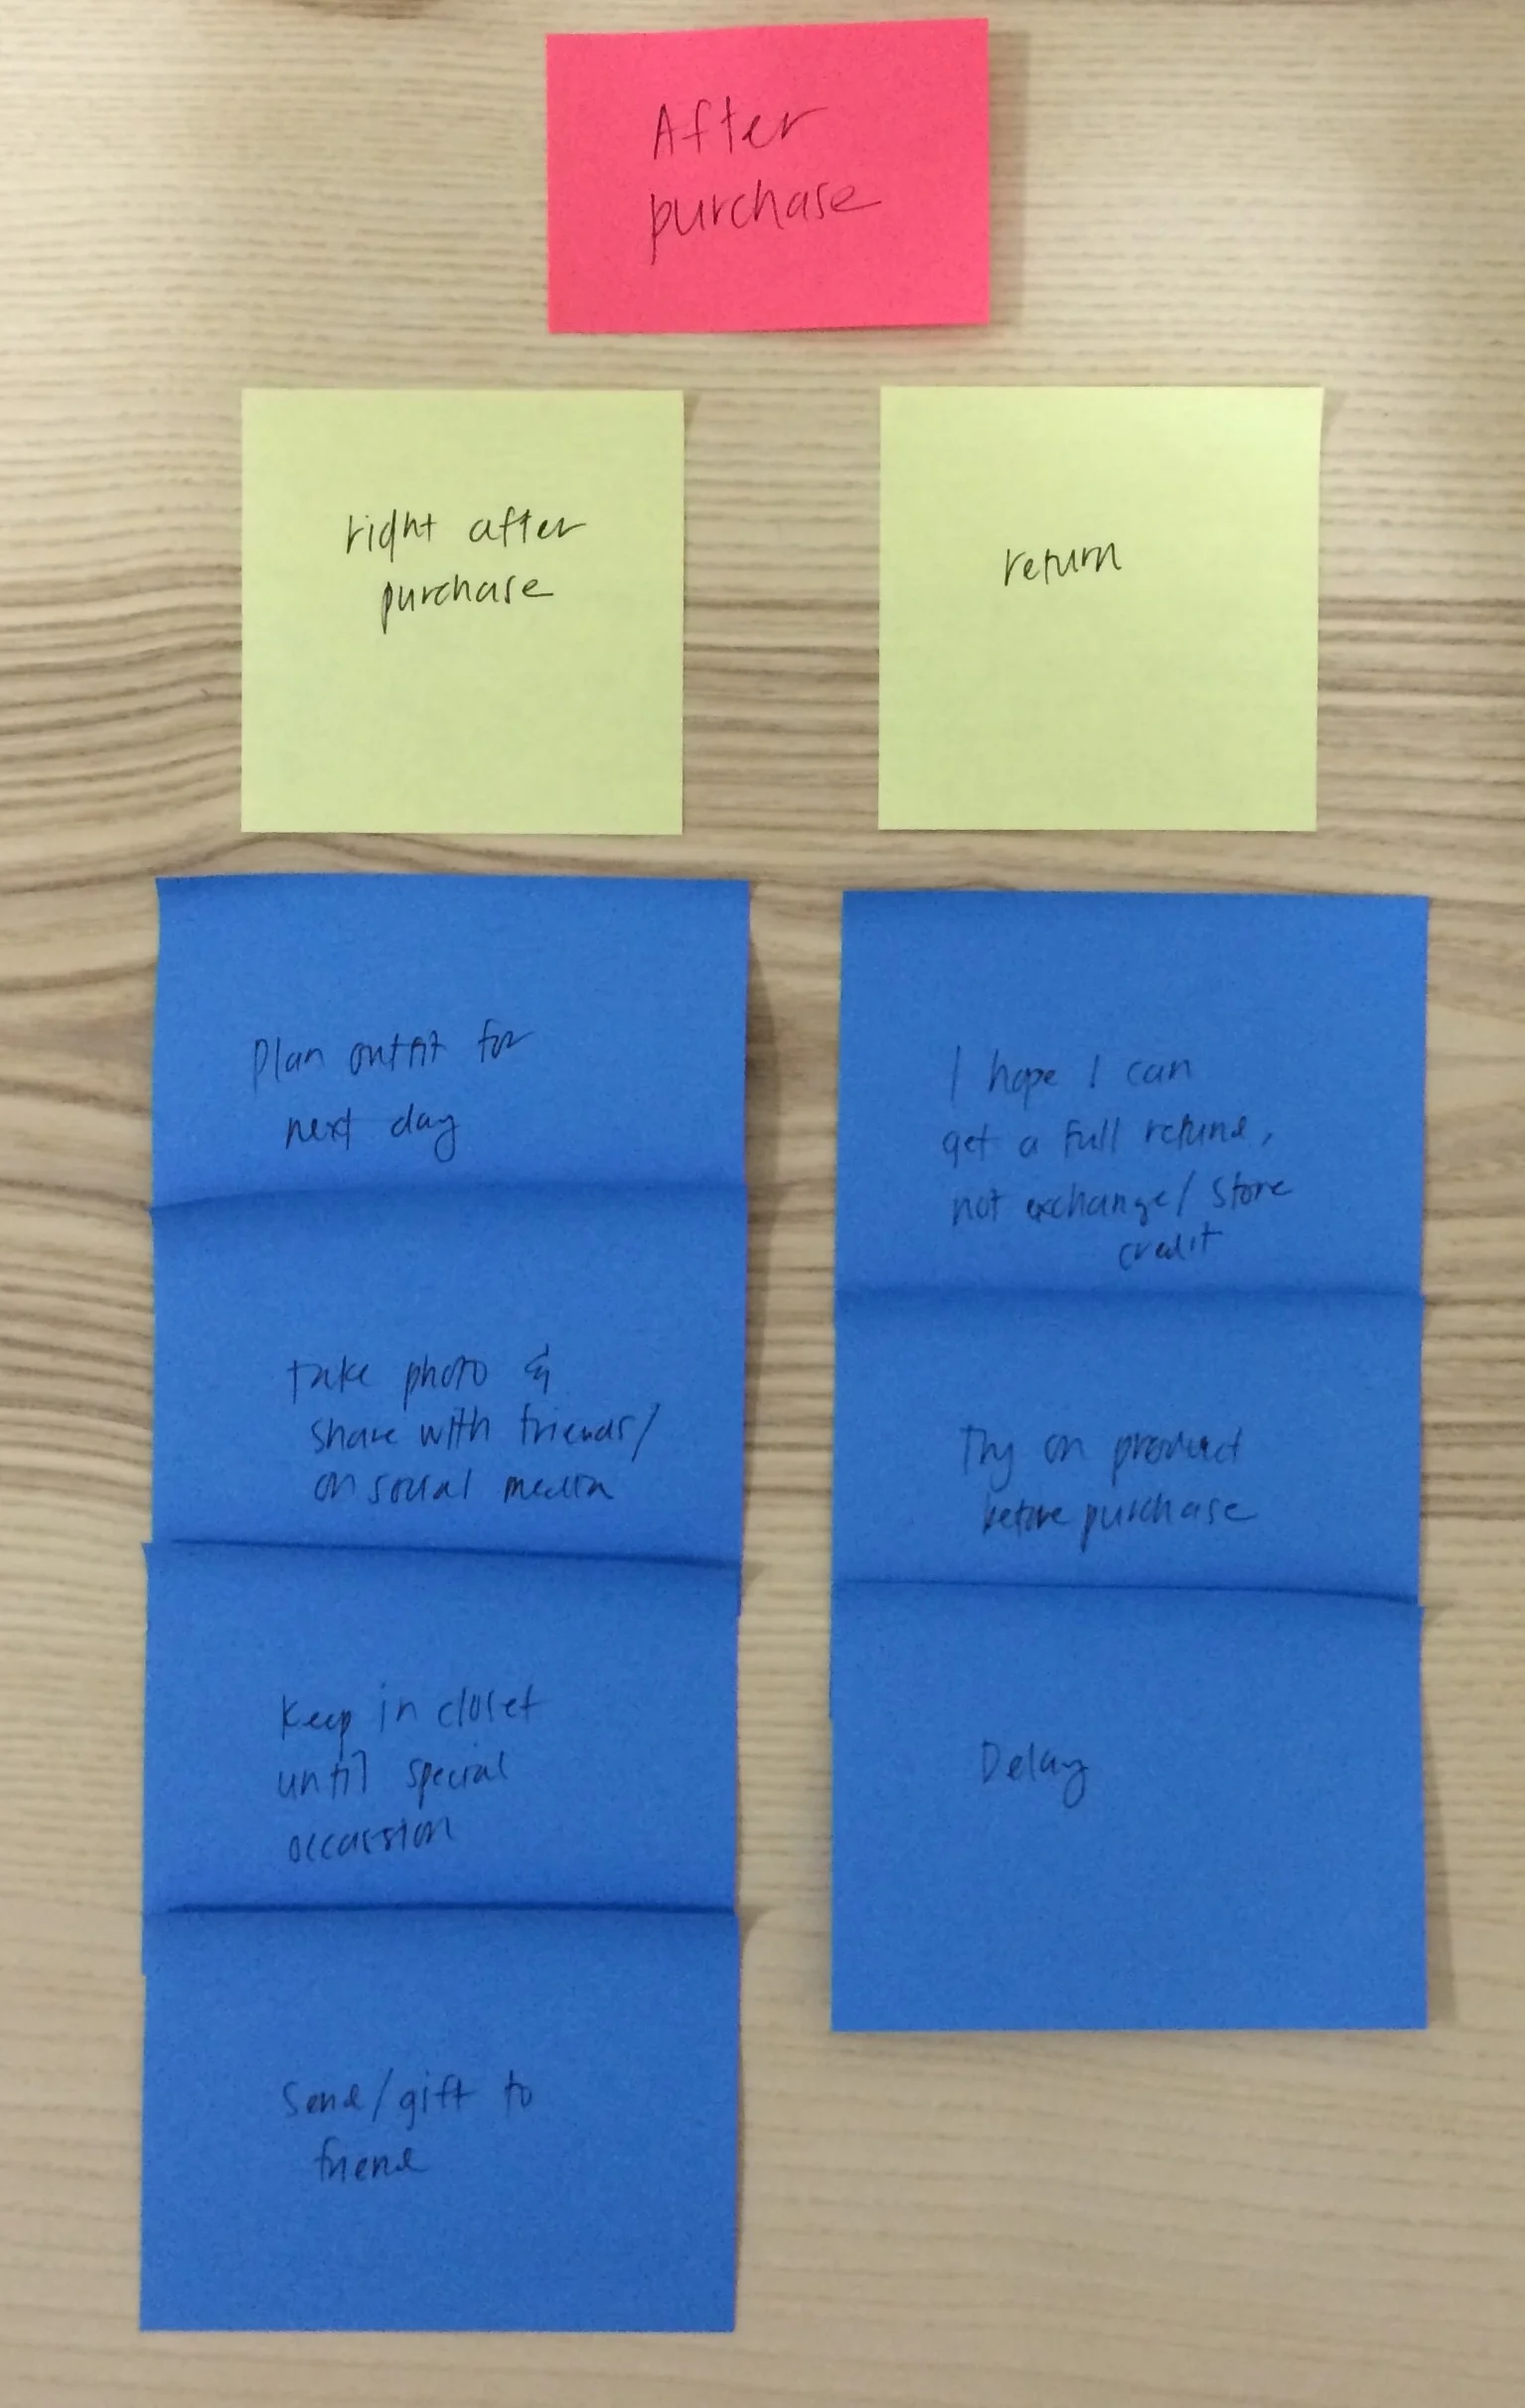 After
purchase
right after
purchase
return
Plan outfit for
next day
take photo &
share with friends/
on social media
Keep in closet
until special
occassion
Send/gift to
friend
I hope I can
get a full refund,
not exchange/store
credit
Try on product
before purchase
Delay